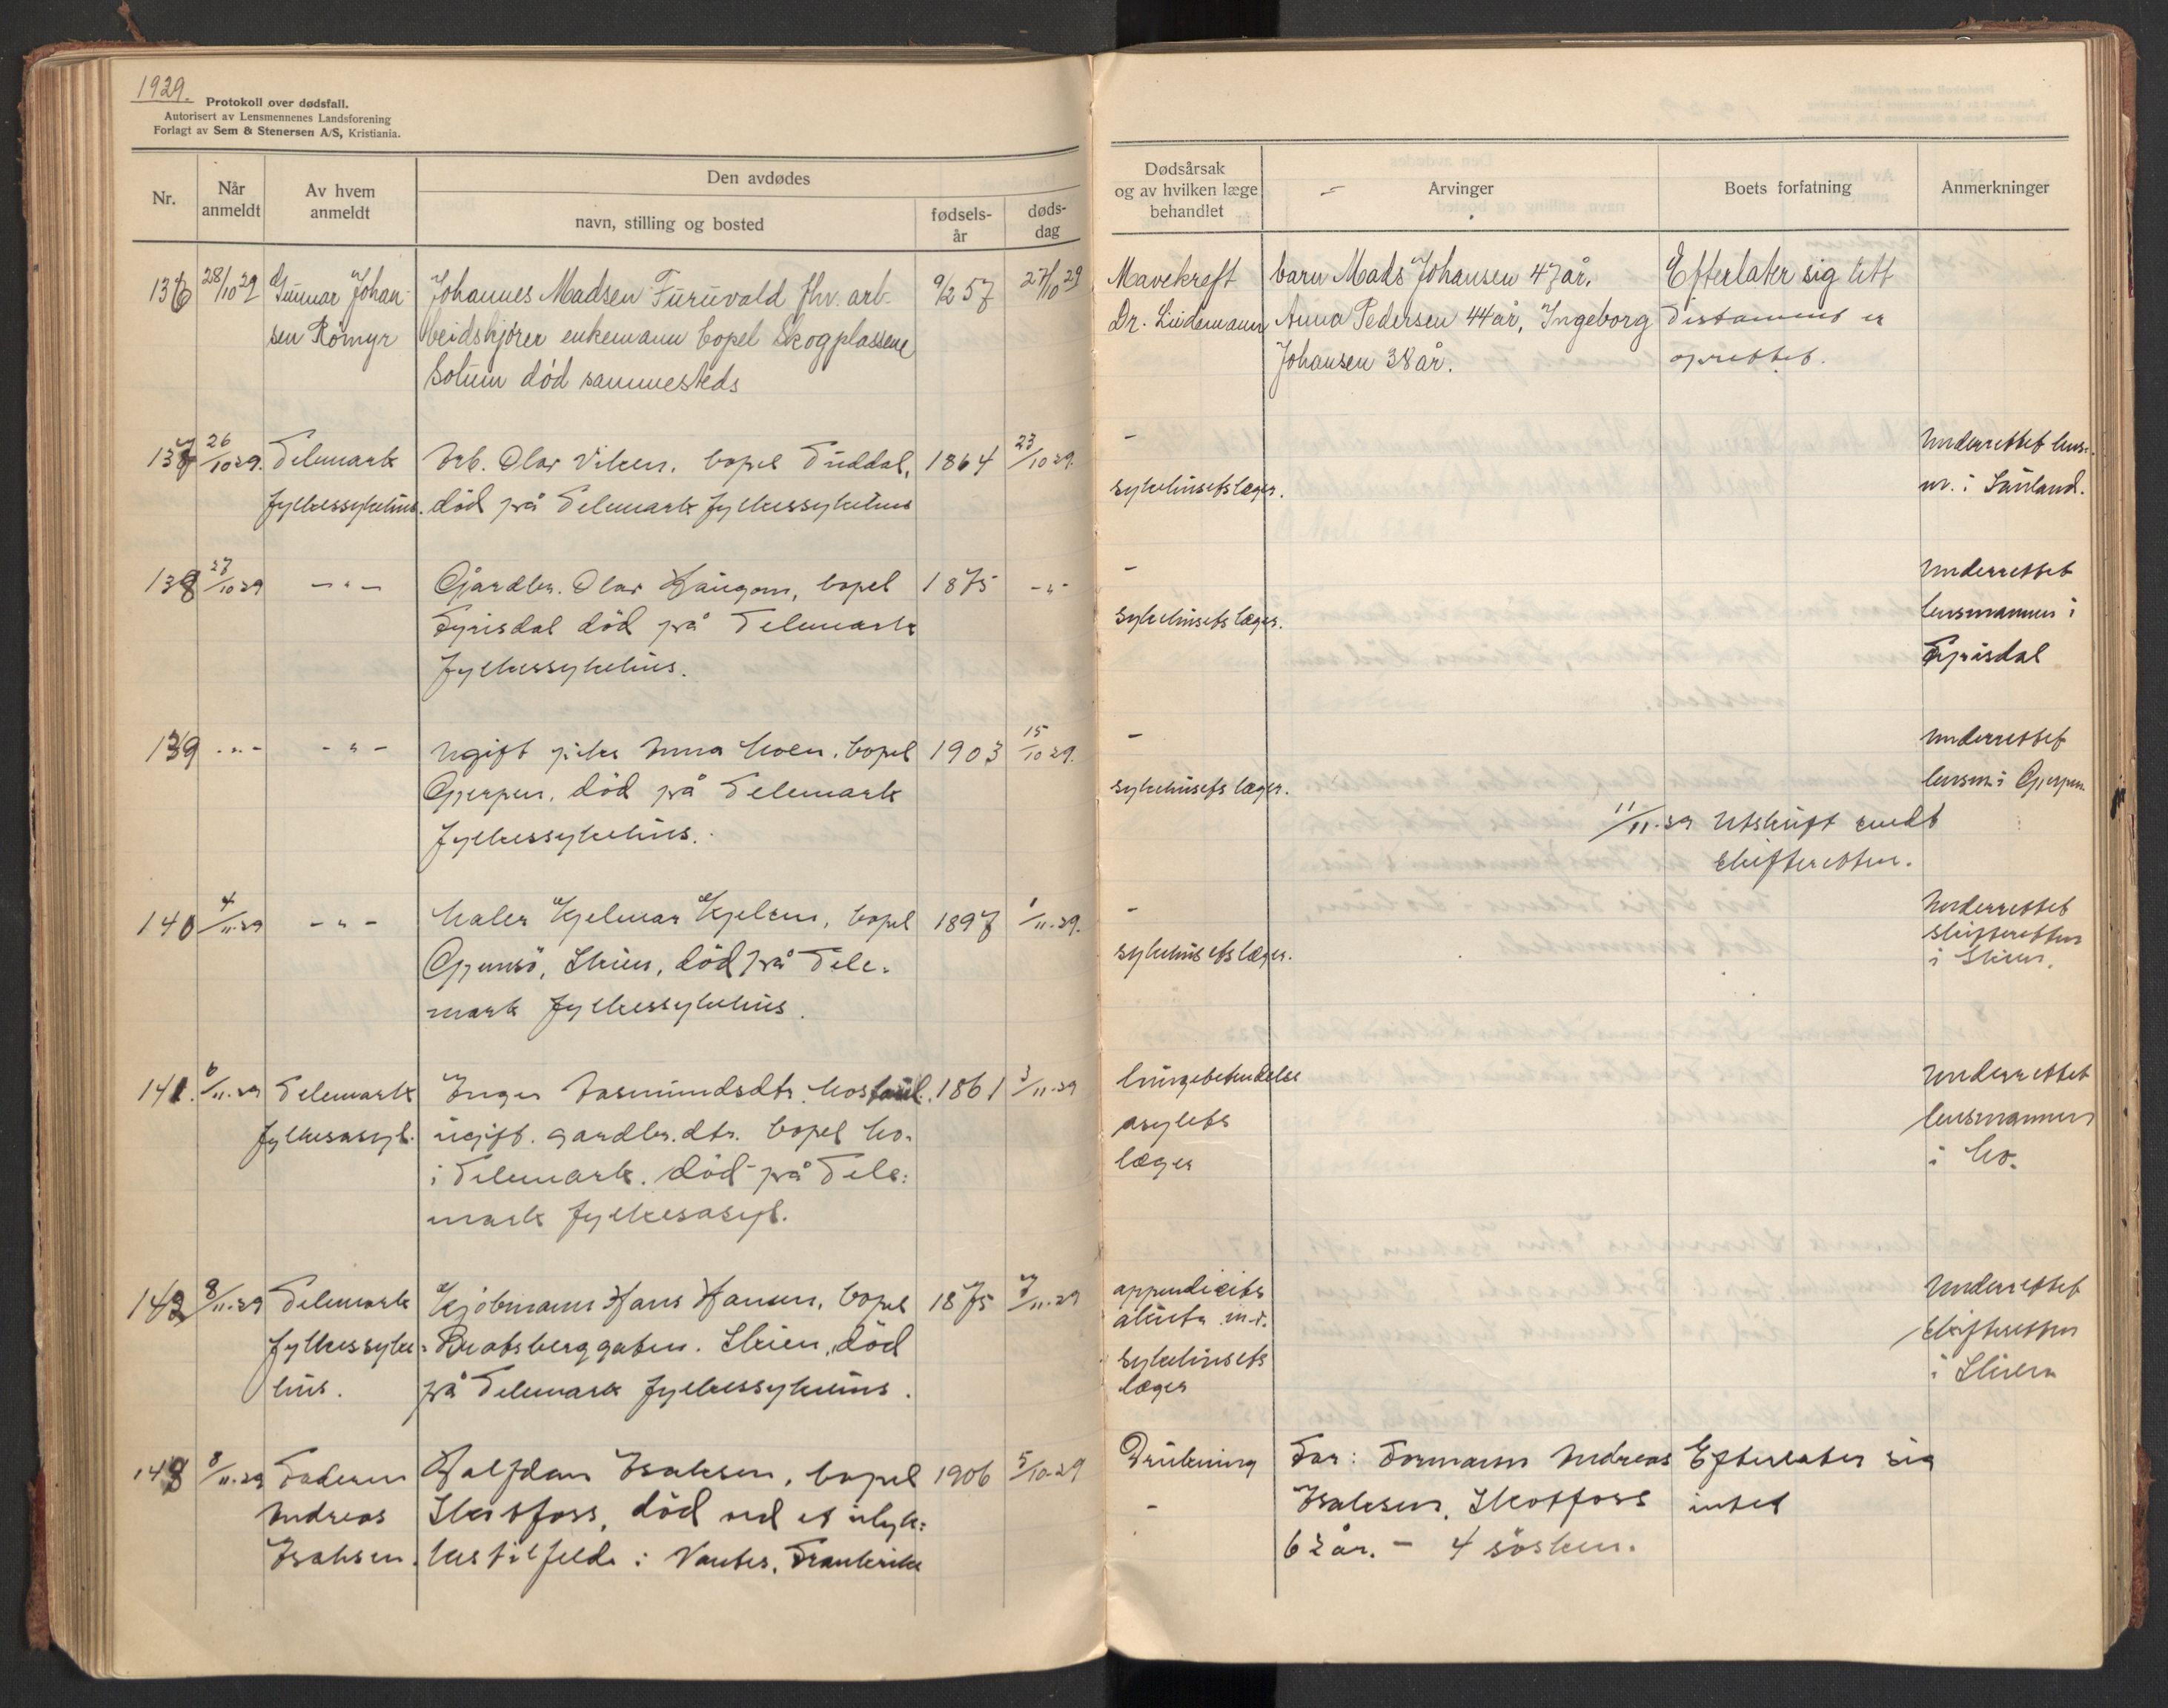 1929.
Protokoll over dødsfall.
Autorisert av Lensmennenes Landsforening
Forlagt av Sem & Stenersen A/S, Kristiania.
Nr.
Når anmeldt
Av hvem anmeldt
Den avdødes
navn, stilling og bosted
fødsels-år
døds-dag
Dødsårsak
og av hvilken læge
behandlet
Arvinger
Boets forfatning
Anmerkninger
136 28/10 29 Gunnar Johan- Johannes Madsen Furuvald fhv. arb- 9/2 57 27/10 29 Mavekreft barn Mads Johansen 47 år. Efterlater sig litt
sen Römyr beidskjører enkemann bopel Skogplassene Dr. Lindemann Anna Pedersen 44 år, Ingeborg Testament er
Solum død sammesteds Johansen 38 år. oprettet.
137 26/10 29. Telemark Arb. Olav Viken, bopel Tuddal, 1864 23/10 29. - Underrettet lens-
fylkessykehus. død på Telemark fylkessykehus sykehusets læger. m. i Sauland.
138 27/10 29 - " - Gårdbr. Olav Haugom, bopel 1875 - " - - Underrettet
Fyrisdal død på Telemark sykehusets læger. lensmannen i
fylkessykehus. Fyrisdal
139 - " - - " - Ugift pike Anna Moen, bopel 1903 15/10 29. - Underrettet
Gjerpen, død på Telemark sykehusets læger. lensm. i Gjerpen
fylkessykehus. 11/11.29 Utskrift sendt
skifteretten.
140 4/11.29 - " - Maler Hjelmar Kjelsen, bopel 1897 1/11.29. - Underrettet
Gjemsö, Skien, død på Tele- sykehusets læger. skifteretten
mark fylkessykehus. i Skien.
141. 6/11.29 Telemark Inger Aasmundsdtr. 1861 3/11.29 lungebetendelse Underrettet
fylkesasyl. ugift. gardbr. dtr. bopel Mo. asylets lensmannen
i Telemark. død på Tele- læger i Mo.
mark fylkesasyl.
142 8/11.29 Telemark Kjøbmann Hans Hansen, bopel 1875 7/11.29 appendicits Underrettet
fylkessyke- Bratsberggaten. Skien, død akuta m. skifteretten
hus. på Telemark fylkessykehus. sykehusets i Skien
læger
143 8/11.29 Faderen Halfdan Isaksen, bopel 1906 5/10 29 Drukning Far: Formann Andreas Efterlater sig
Andreas Skotfoss, død ved et ulyk- - Isaksen, Skotfoss intet
Isaksen. kestilfelde i Nantes, Frankrike 62 år. - 4 søsken.